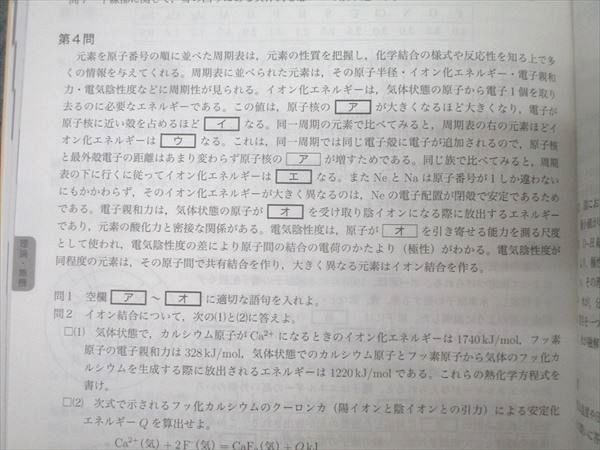 第4問
元素を原子番号の順に並べた周期表は，元素の性質を把握し，化学結合の様式や反応性を知る上で多
くの情報を与えてくれる。周期表に並べられた元素は，その原子半径・イオン化エネルギー・電子親和
力・電気陰性度などに周期性が見られる。イオン化エネルギーは，気体状態の原子から電子1個を取り
去るのに必要なエネルギーである。この値は，原子核の ア が大きくなるほど大きくなり，電子が
原子核に近い殻を占めるほど イ なる。同一周期の元素で比べてみると，周期表の右の元素ほどイ
オン化エネルギーは ウ なる。これは，同一周期では同じ電子殻に電子が追加されるので，原子核
と最外殻電子の距離はあまり変わらず原子核の ア が増すためである。同じ族で比べてみると，周期
表の下に行くに従ってイオン化エネルギーは エ なる。またNeとNaは原子番号が1しか違わない
にもかかわらず，そのイオン化エネルギーが大きく異なるのは，Neの電子配置が閉殻で安定であるため
である。電子親和力は，気体状態の原子が オ を受け取り陰イオンになる際に放出するエネルギー
であり，元素の酸化力と密接な関係がある。電気陰性度は，原子が オ を引き寄せる能力を測る尺度
として使われ，電気陰性度の差により原子間の結合の電荷のかたより（極性）がわかる。電気陰性度が
同程度の元素は，その原子間で共有結合を作り，大きく異なる元素はイオン結合を作る。
理論・無機
問1 空欄 ア ～ オ に適切な語句を入れよ。
問2 イオン結合について，次の(1)と(2)に答えよ。
□(1) 気体状態で，カルシウム原子がCa²⁺になるときのイオン化エネルギーは1740kJ/mol，フッ素
原子の電子親和力は328kJ/mol，気体状態でのカルシウム原子とフッ素原子から気体のフッ化カ
ルシウムを生成する際に放出されるエネルギーは1220kJ/molである。これらの熱化学方程式を
書け。
□(2) 次式で示されるフッ化カルシウムのクーロン力（陽イオンと陰イオンとの引力）による安定化
エネルギーQを算出せよ。
Ca²⁺(気)＋2F⁻(気)＝CaF₂(気)＋QkJ